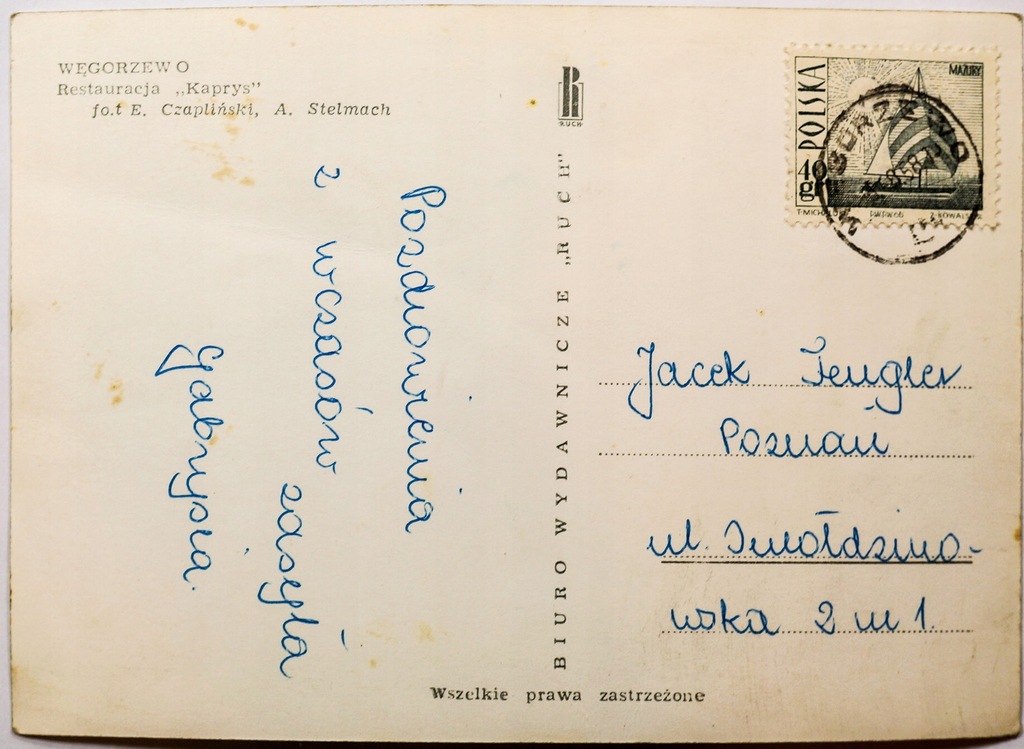 WĘGORZEWO
Restauracja „Kaprys”
fo.t E. Czapliński, A. Stelmach
Pozdrowienia
z wczasów
zasyła
Gabrysia.
R
RUCH
BIURO WYDAWNICZE „RUCH”
POLSKA
MAZURY
40
gr
PWPW 60
WĘGORZEWO
Jacek Fengler
Poznań
ul. Smołdzino-
wska 2 m 1.
Wszelkie prawa zastrzeżone